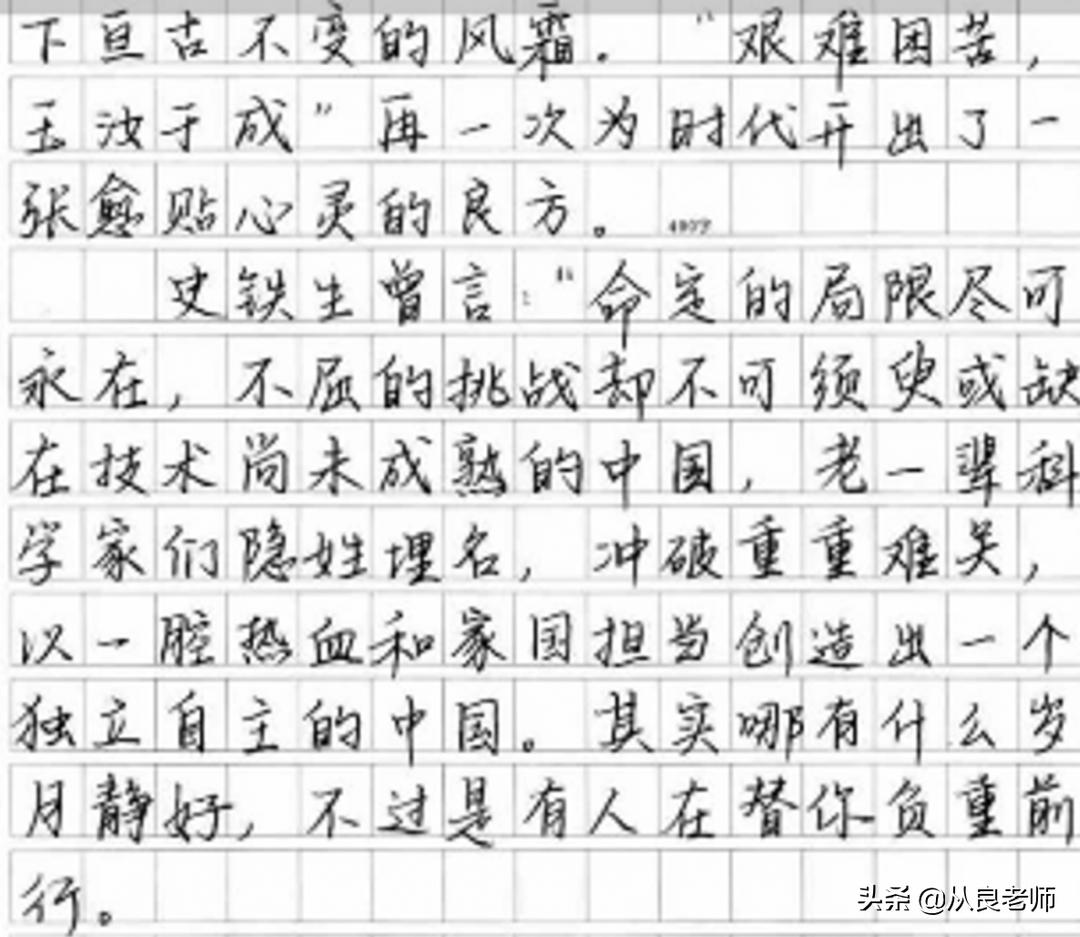 下亘古不变的风霜。“艰难困苦，
玉汝于成”再一次为时代开出了一
张愈贴心灵的良方。
史铁生曾言：“命定的局限尽可
永在，不屈的挑战却不可须臾或缺
在技术尚未成熟的中国，老一辈科
学家们隐姓埋名，冲破重重难关，
以一腔热血和家国担当创造出一个
独立自主的中国。其实哪有什么岁
月静好，不过是有人在替你负重前
行。
头条 @从良老师